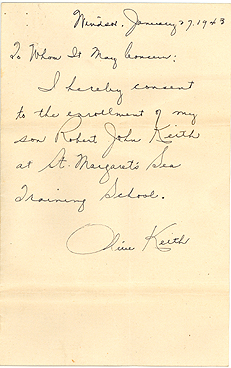 Windsor, January 27, 1943
To Whom It May Concern:
I hereby consent
to the enrollment of my
son Robert John Keith
at St. Margaret's Sea
Training School.
Olive Keith